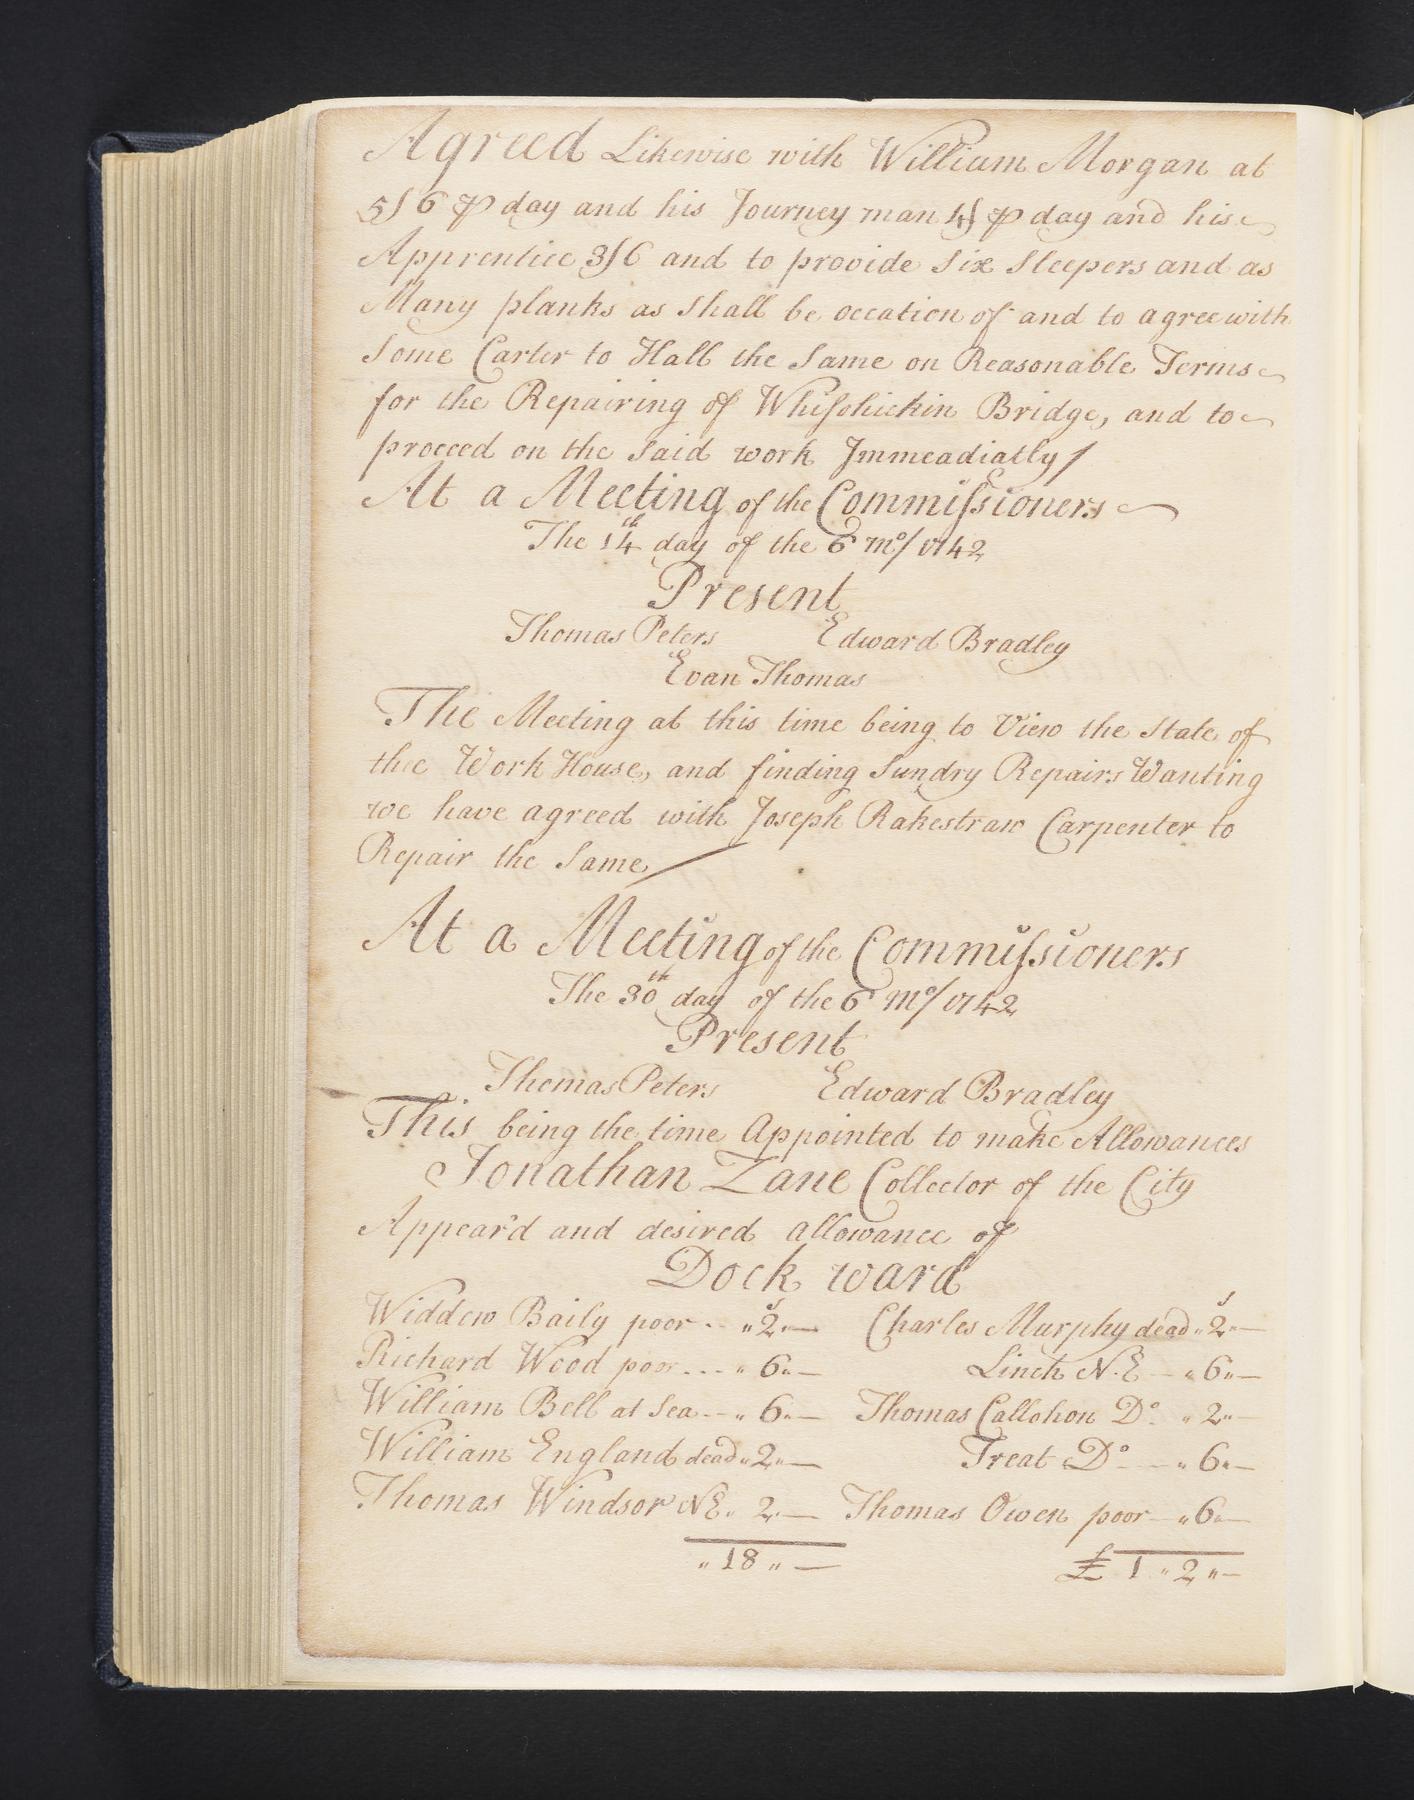 Agreed Likewise with William Morgan at
5ſ6 ⅌ day and his Journey man 4ſ ⅌ day and his
Apprentice 3ſ6 and to provide Six Sleepers and as
Many planks as Shall be occation of and to agree with
Some Carter to Hall the Same on Reasonable Terms
for the Repairing of Whiſohickin Bridge, and to
proceed on the Said work Jmmeadiatly/
At a Meeting of the Commiſsioners
The 14th day of the 6 mo/ 1742
Present
Thomas Peters Edward Bradley
Evan Thomas
The Meeting at this time being to View the State of
the Work House, and finding Sundry Repairs Wanting
we have agreed with Joseph Rakestraw Carpenter to
Repair the Same
At a Meeting of the Commiſsioners
The 30th day of the 6 mo/ 1742
Present
Thomas Peters Edward Bradley
This being the time Appointed to make Allowances
Jonathan Zane Collector of the City
Appear'd and desired allowance of
Dock ward
Widdow Baily poor .. „ 2s „ — Charles Murphy dead „ 2s „ —
Richard Wood poor ... „ 6 „ — Linch N.E — „ 6 „ —
William Bell at Sea — „ 6 „ — Thomas Callohon Do. „ 2 „ —
William England dead „ 2 „ — Treat Do — „ 6 „ —
Thomas Windsor NE „ 2 „ — Thomas Owen poor — „ 6 „ —
„ 18 „ — £ 1 „ 2 „ —